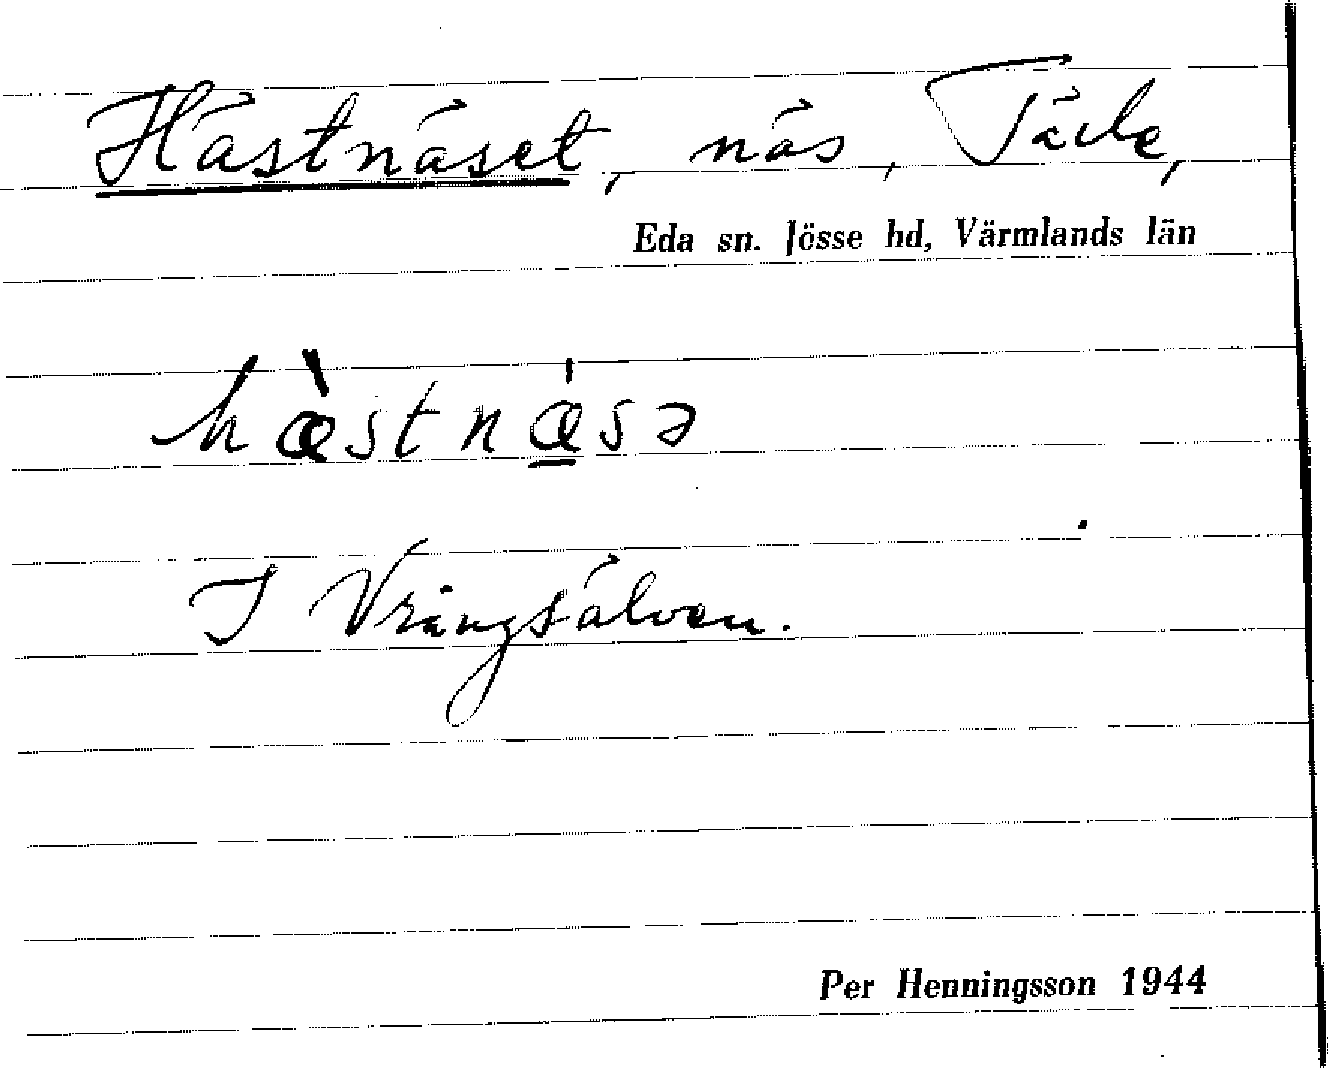 Hästnäset, näs, Täcke,
Eda sn. Jösse hd, Värmlands län
hæ̀stnǽsə
I Vrångsälven.
Per Henningsson 1944